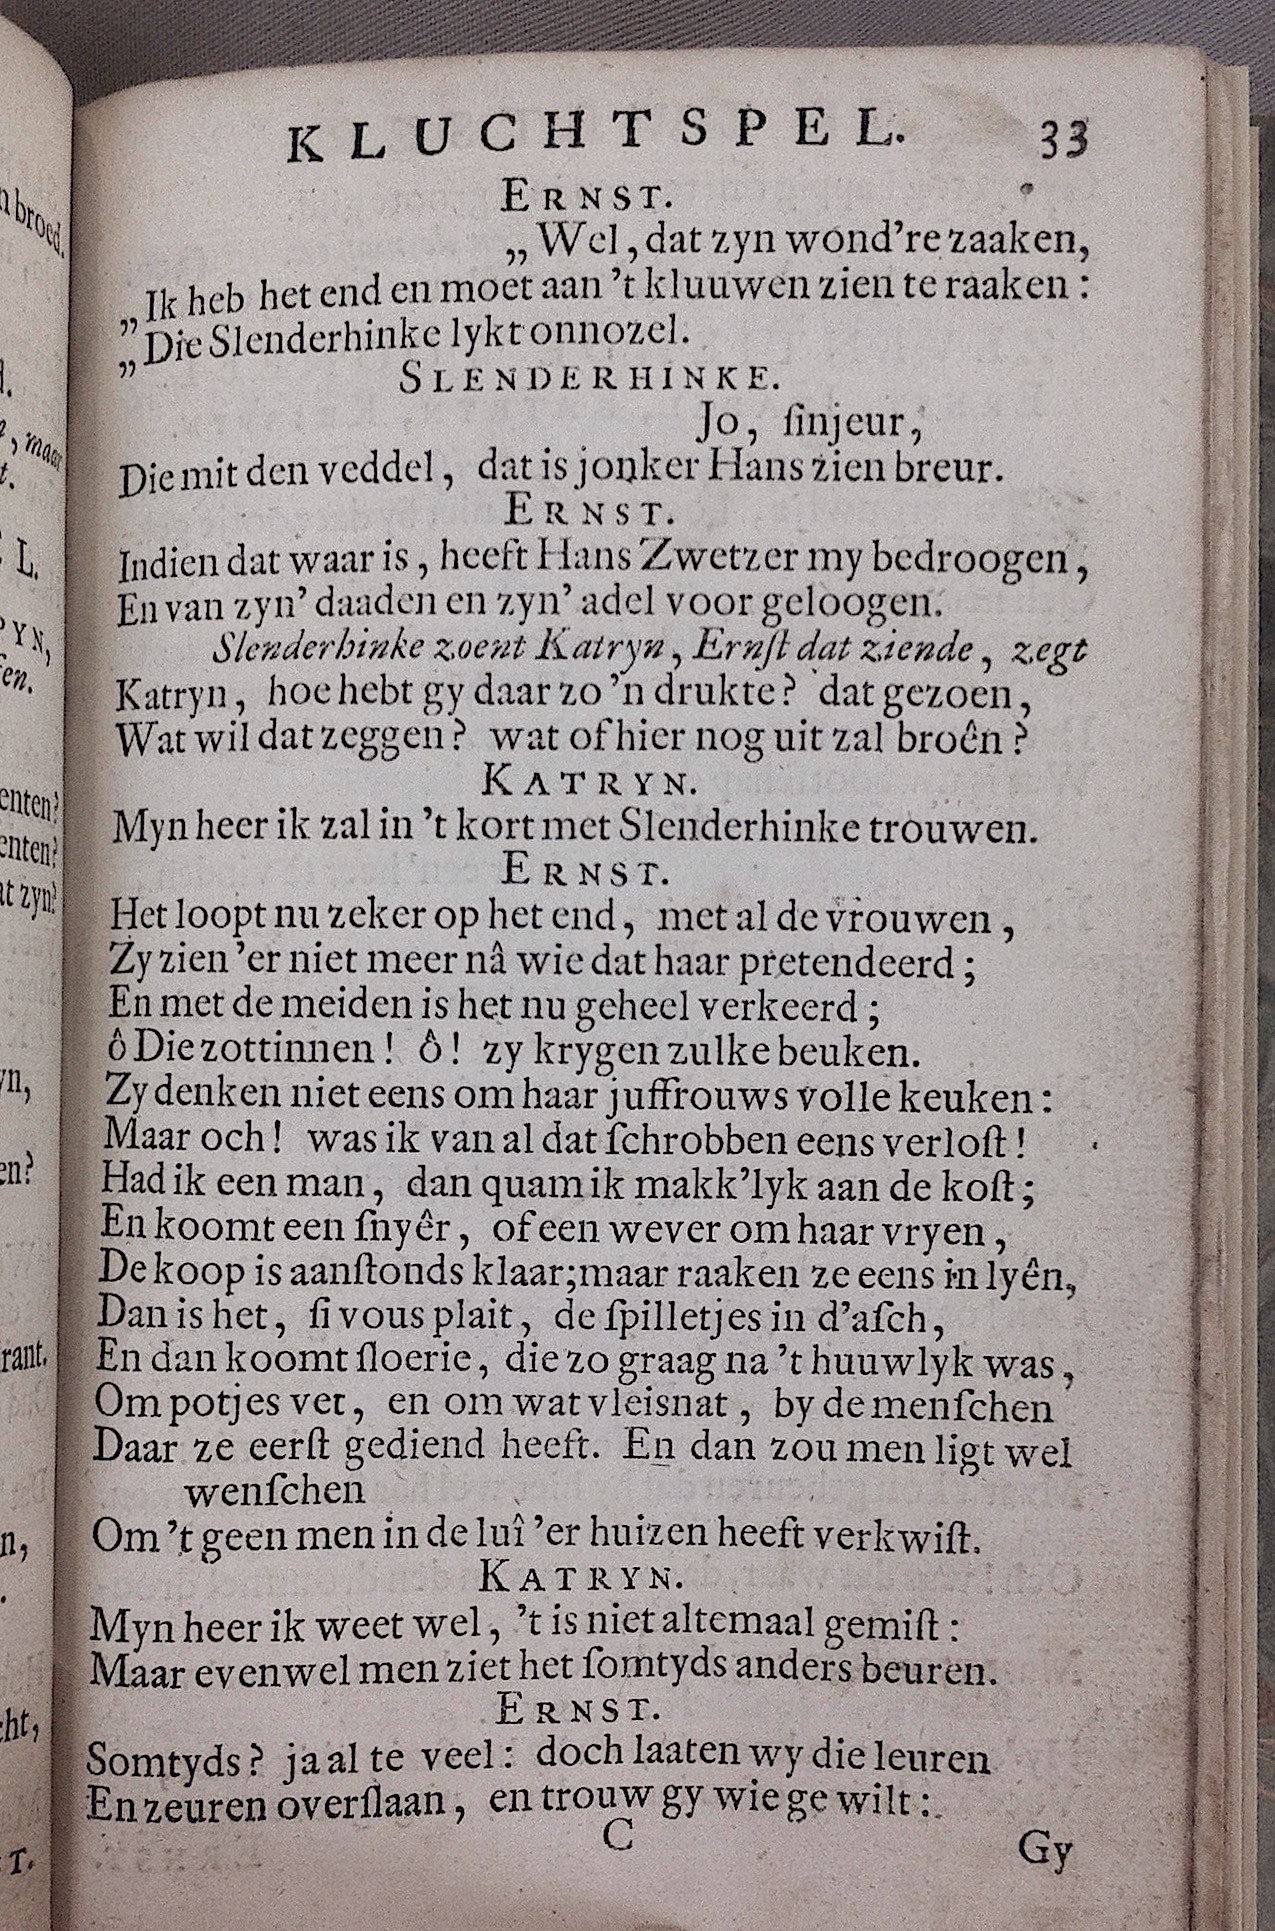 KLUCHTSPEL. 33
ERNST.
„Wel, dat zyn wond're zaaken,
„Ik heb het end en moet aan 't kluuwen zien te raaken:
„Die Slenderhinke lykt onnozel.
SLENDERHINKE.
Jo, ſinjeur,
Die mit den veddel, dat is jonker Hans zien breur.
ERNST.
Indien dat waar is, heeft Hans Zwetzer my bedroogen,
En van zyn' daaden en zyn' adel voor geloogen.
Slenderhinke zoent Katryn, Ernſt dat ziende, zegt
Katryn, hoe hebt gy daar zo 'n drukte? dat gezoen,
Wat wil dat zeggen? wat of hier nog uit zal broên?
KATRYN.
Myn heer ik zal in 't kort met Slenderhinke trouwen.
ERNST.
Het loopt nu zeker op het end, met al de vrouwen,
Zy zien 'er niet meer nâ wie dat haar pretendeerd;
En met de meiden is het nu geheel verkeerd;
ô Die zottinnen! ô! zy krygen zulke beuken.
Zy denken niet eens om haar juffrouws volle keuken:
Maar och! was ik van al dat ſchrobben eens verloſt!
Had ik een man, dan quam ik makk'lyk aan de koſt;
En koomt een ſnyêr, of een wever om haar vryen,
De koop is aanſtonds klaar; maar raaken ze eens in lyên,
Dan is het, ſi vous plait, de ſpilletjes in d'aſch,
En dan koomt ſloerie, die zo graag na 't huuwlyk was,
Om potjes vet, en om wat vleisnat, by de menſchen
Daar ze eerſt gediend heeft. En dan zou men ligt wel
wenſchen
Om 't geen men in de luî 'er huizen heeft verkwiſt.
KATRYN.
Myn heer ik weet wel, 't is niet altemaal gemiſt:
Maar evenwel men ziet het ſomtyds anders beuren.
ERNST.
Somtyds? ja al te veel: doch laaten wy die leuren
En zeuren overſlaan, en trouw gy wie ge wilt:
C
Gy